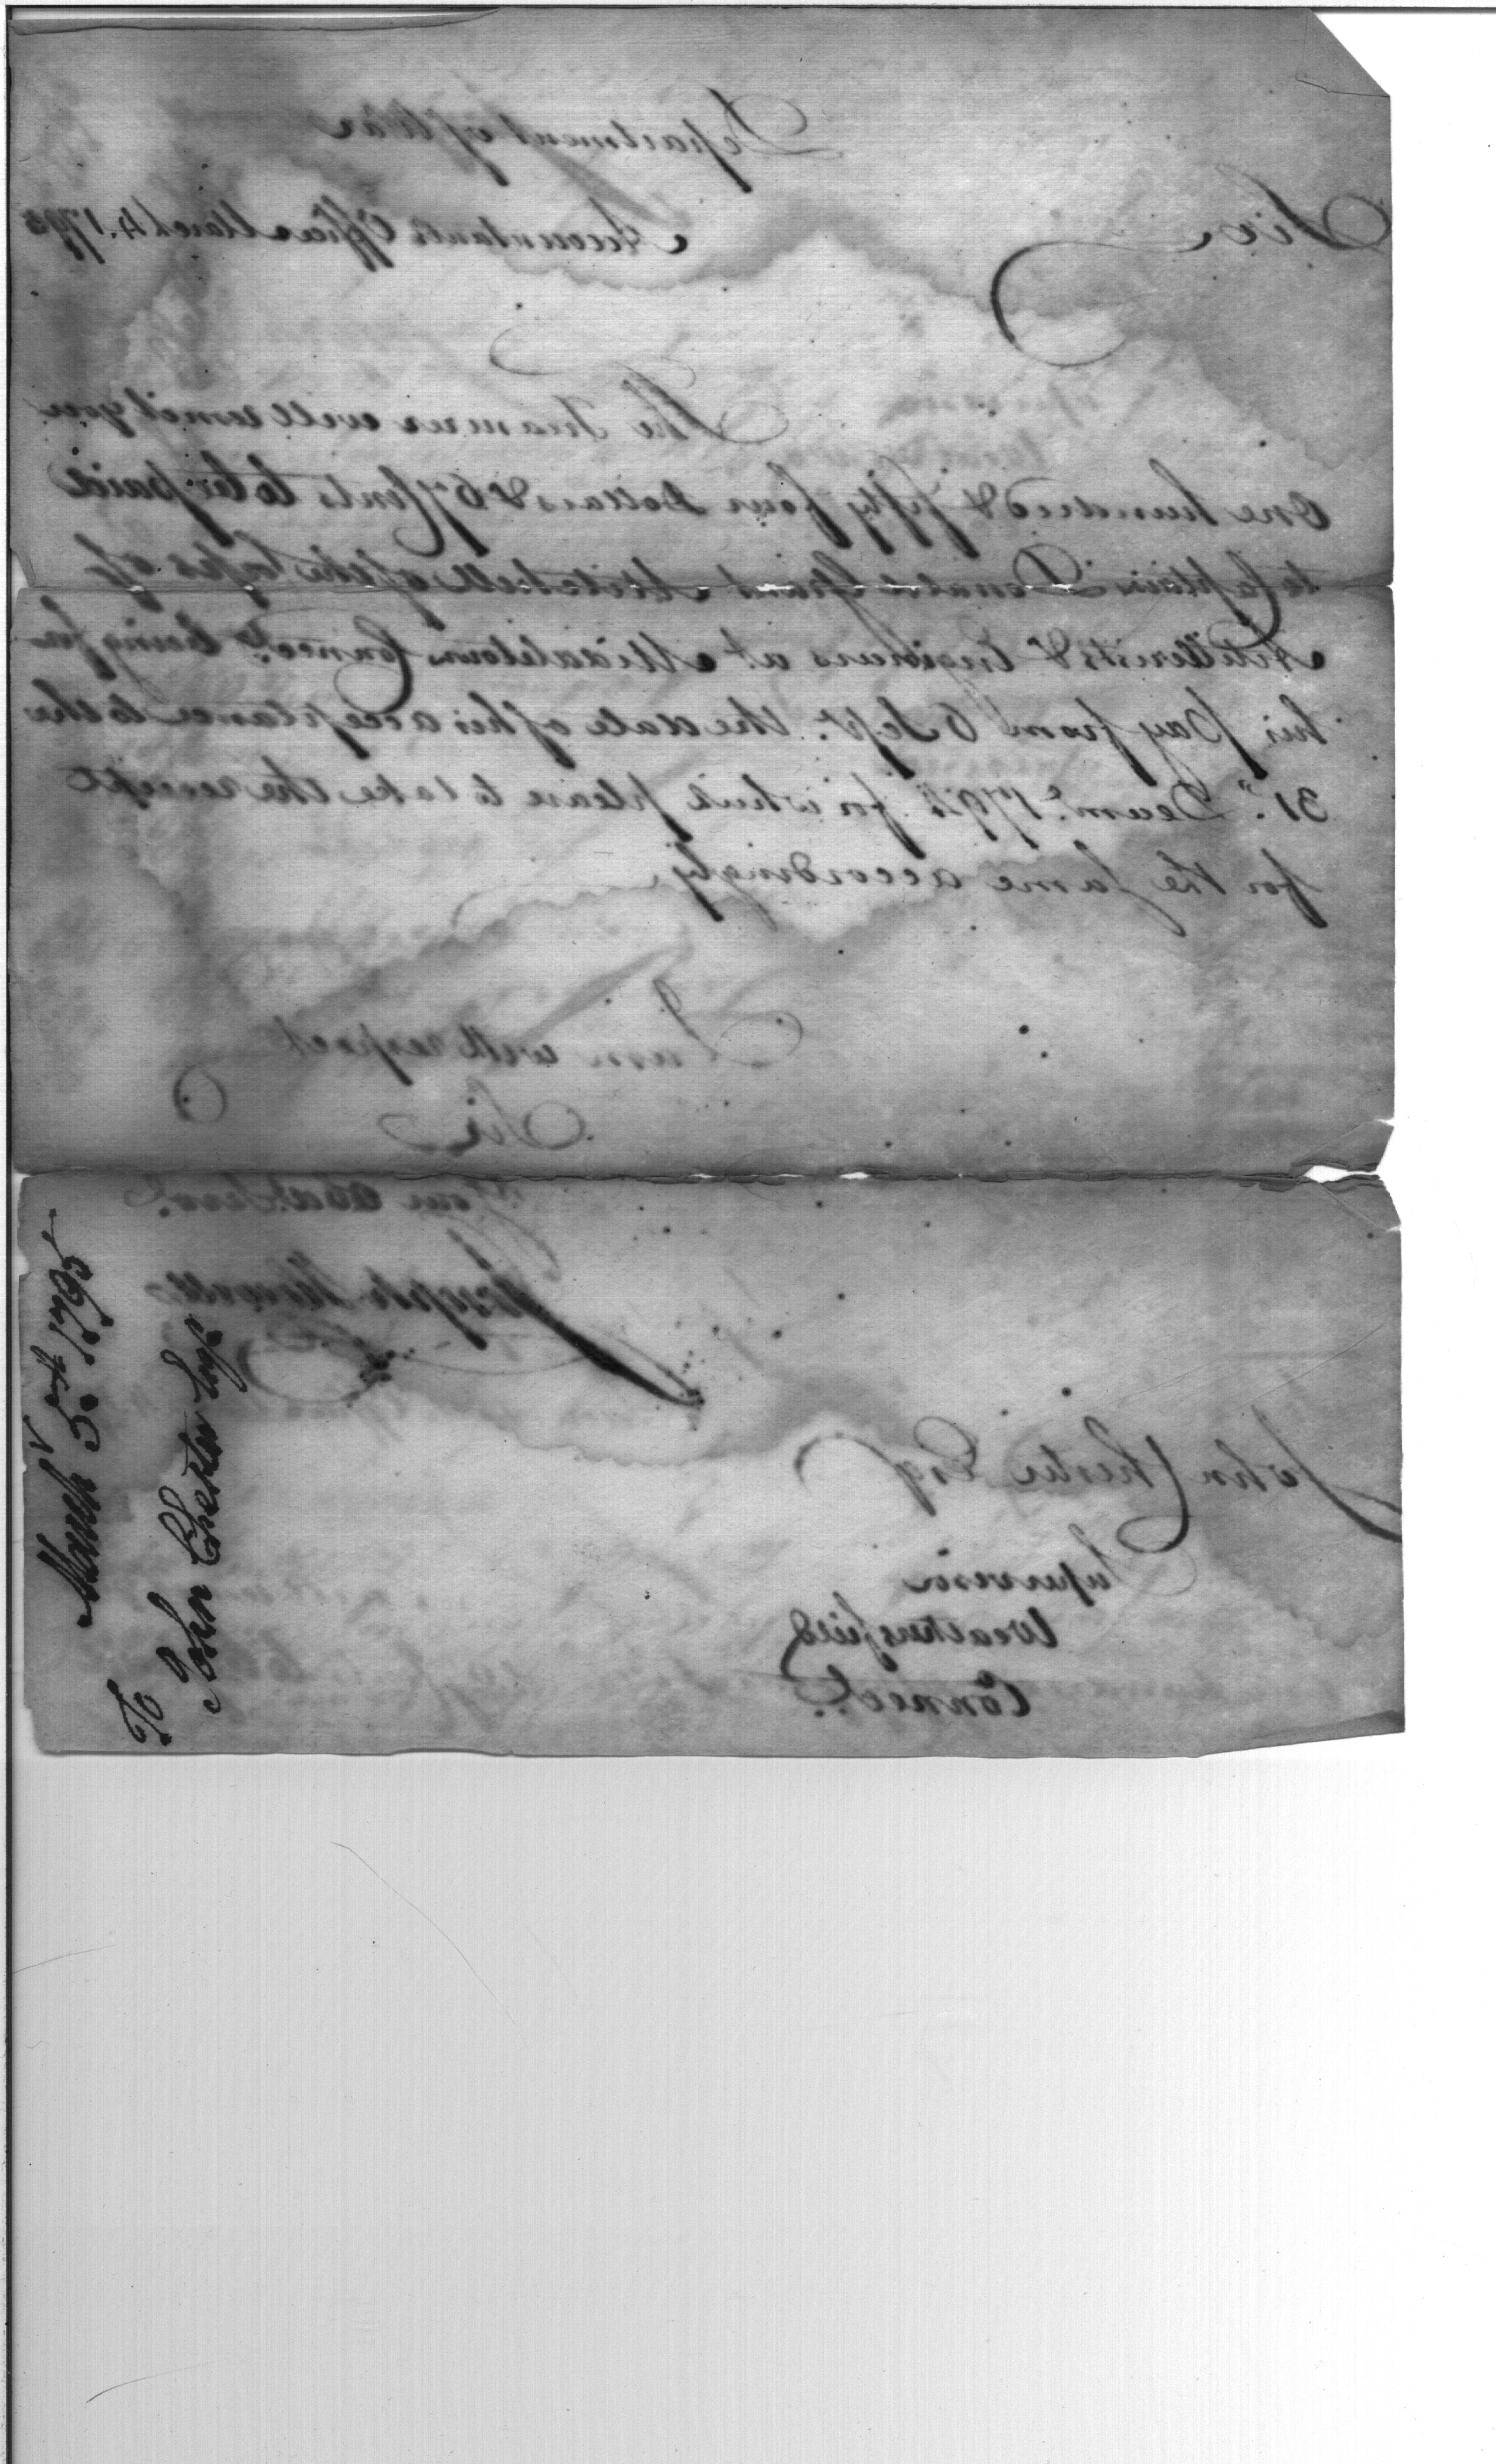 Department of War
Sir Accountants Office March 4. 1795
The Treasurer will remit you
One hundred & fifty four Dollars & 67 Cents to be paid
to Captain Donald Grant Mitchell of the Corps of
Artillerists & Engineers at Middletown Connect. being for
his Pay from 6 Sept. the date of his acceptance to the
31st. Decemr. 1794. for which please to take the receipt
for the same accordingly
I am with respect
Sir
Your Obed. Servt.
Joseph Howell
John Chester Esq
Supervisor
Weathersfield
Connect.
March 5th. 1795
To
John Chester Esqr